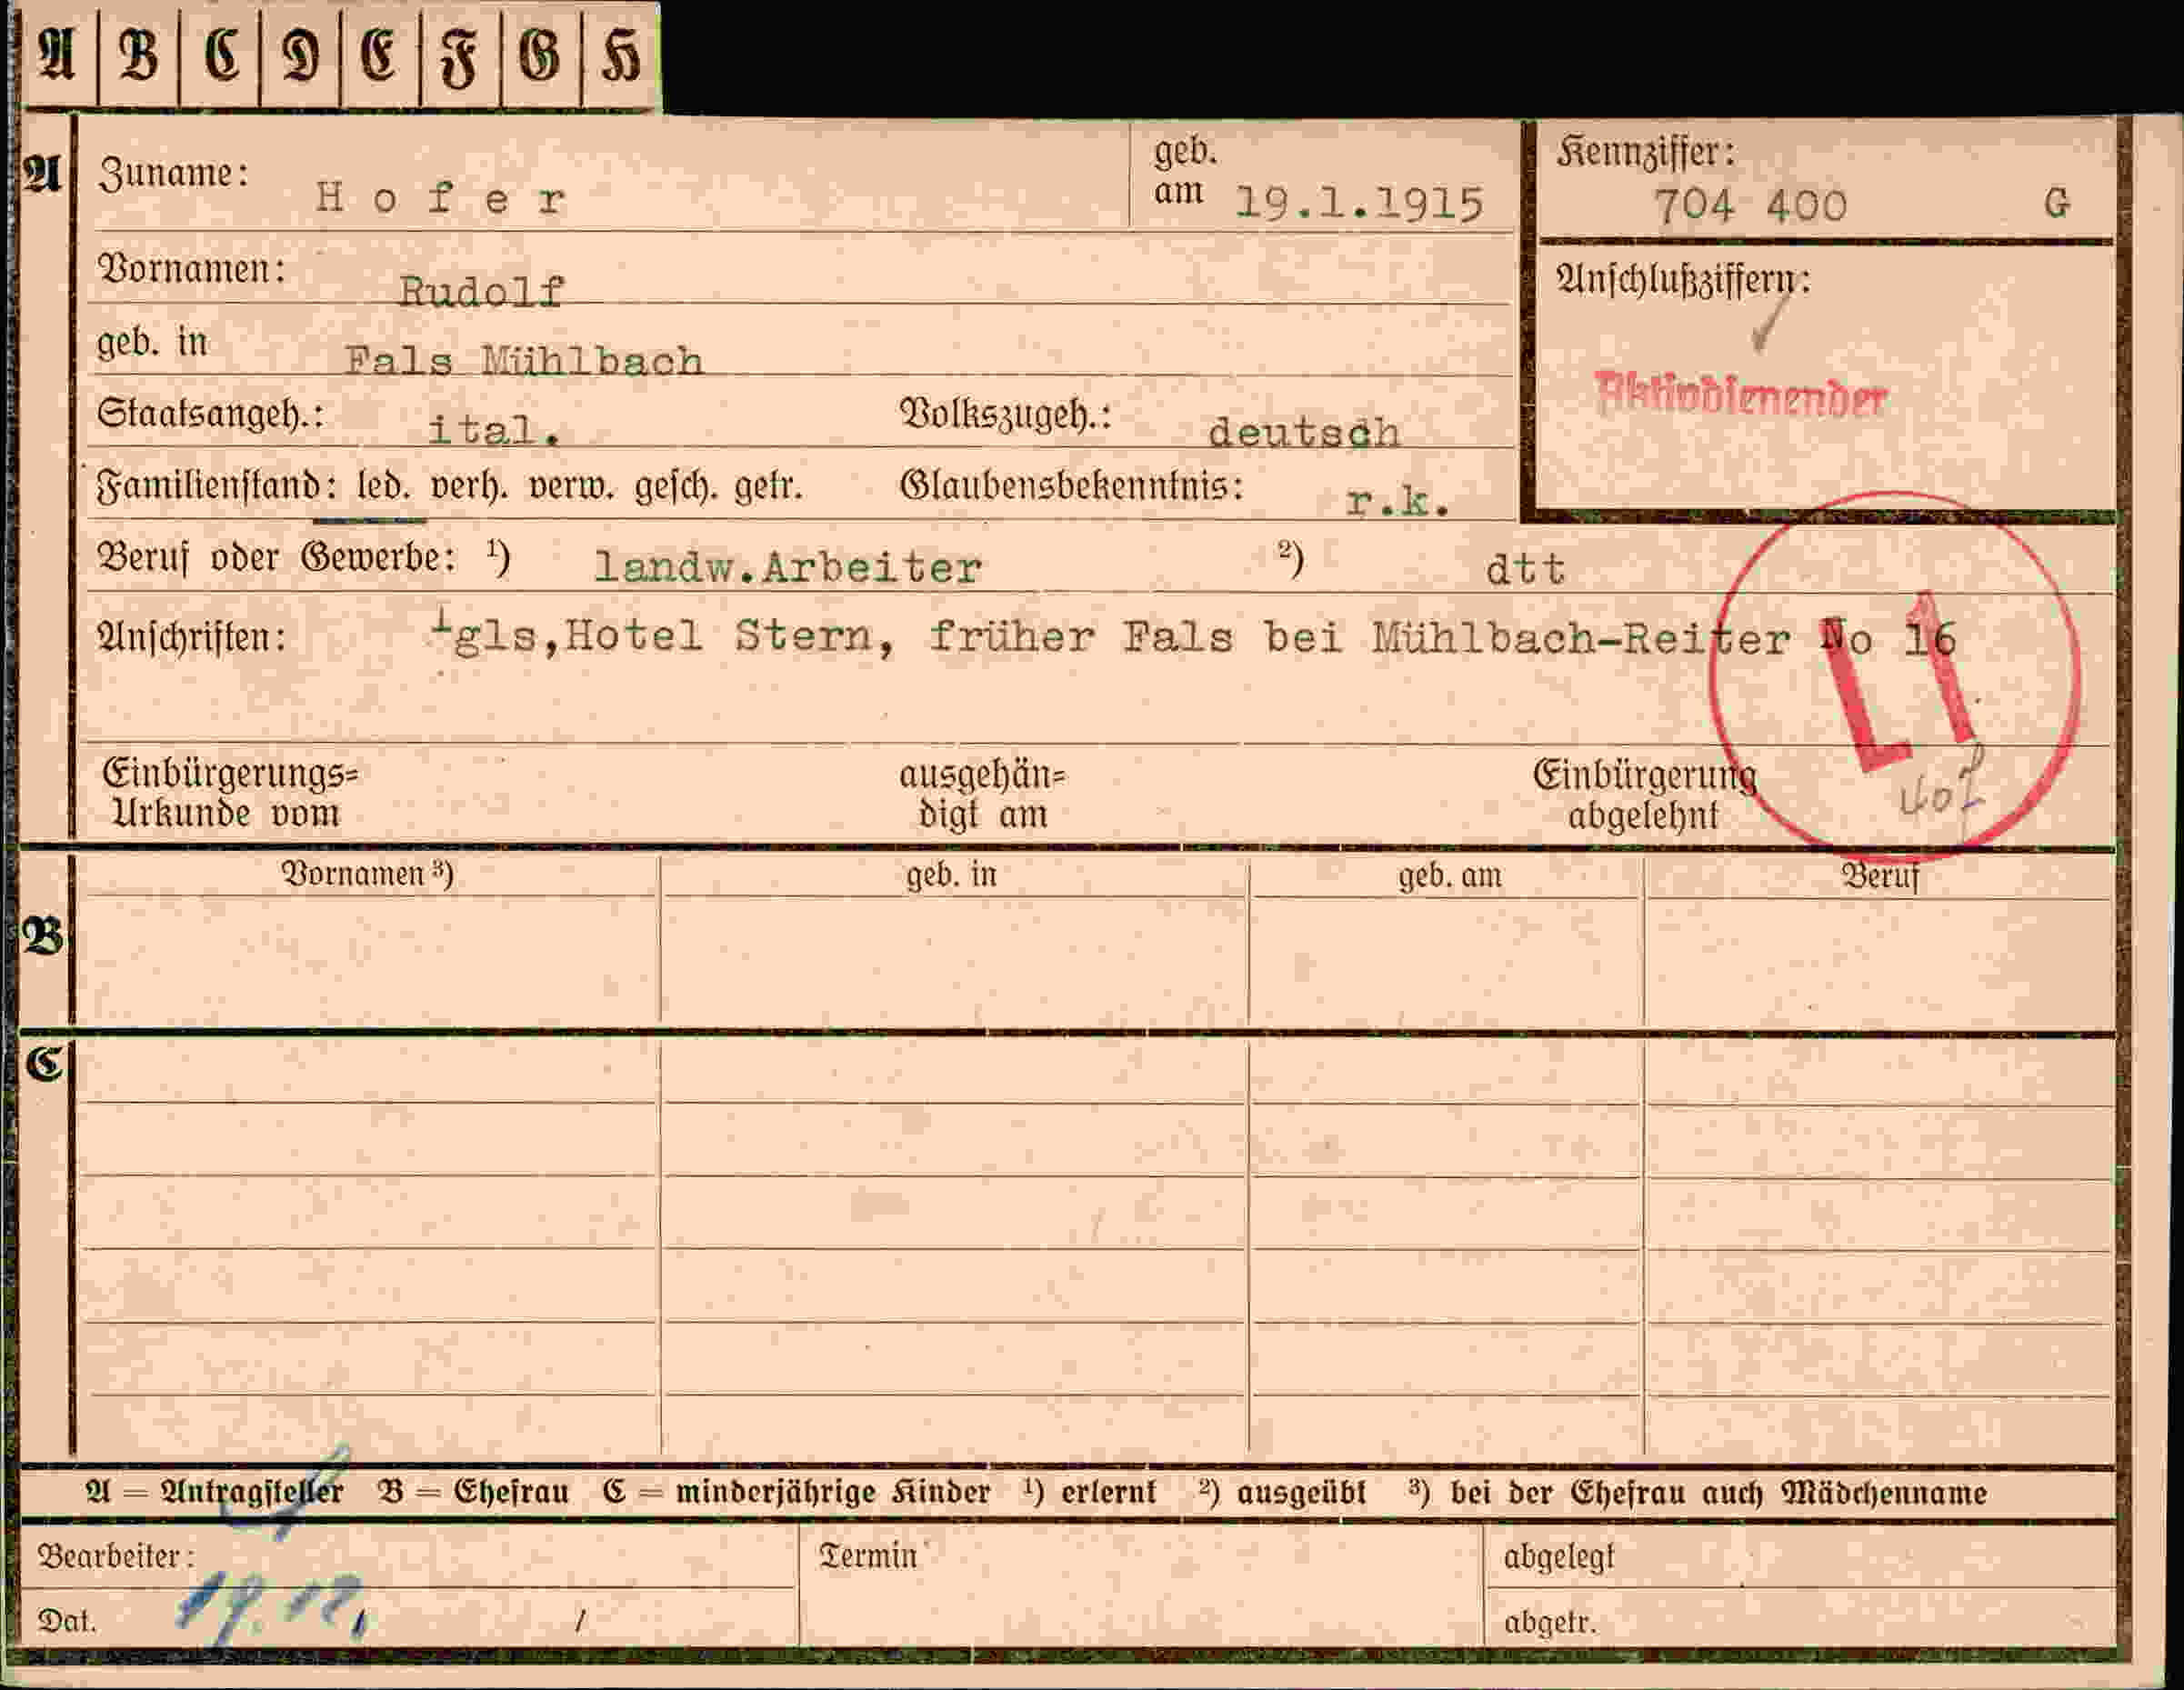 A B C D E F G H
A Zuname: Hofer geb. am 19.1.1915
Kennziffer: 704 400 G
Vornamen: Rudolf
Anschlußziffern:
geb. in Fals Mühlbach
Aktivdienender
Staatsangeh.: ital. Volkszugeh.: deutsch
Familienstand: led. verh. verw. gesch. getr. Glaubensbekenntnis: r.k.
Beruf oder Gewerbe: ¹) landw.Arbeiter ²) dtt
Anschriften: Igls,Hotel Stern, früher Fals bei Mühlbach-Reiter No 16
L1
Einbürgerungs= ausgehän= Einbürgerung
Urkunde vom digt am abgelehnt
Vornamen ³) geb. in geb. am Beruf
B
C
A = Antragsteller B = Ehefrau C = minderjährige Kinder ¹) erlernt ²) ausgeübt ³) bei der Ehefrau auch Mädchenname
Bearbeiter: Termin abgelegt
Dat. 19.12. / abgetr.